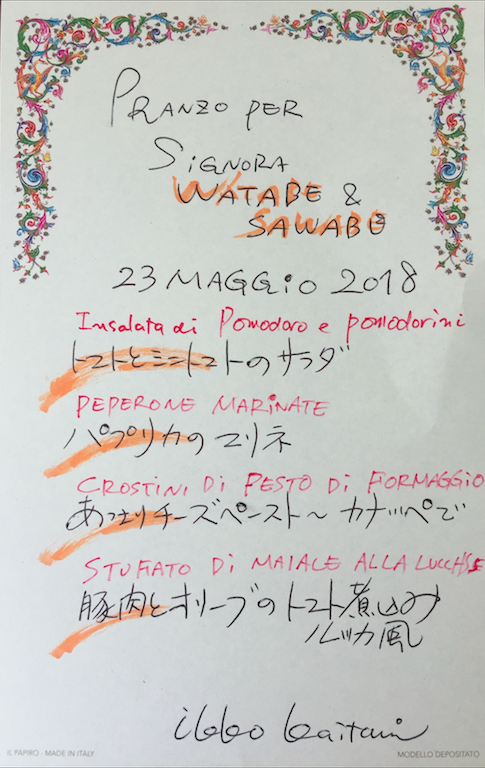 PRANZO PER
SIGNORA
WATABE &
SAWABE
23 MAGGIO 2018
Insalata di Pomodoro e pomodorini
トマトとミニトマトのサラダ
PEPERONE MARINATE
パプリカのマリネ
CROSTINI DI PESTO DI FORMAGGIO
あっさりチーズペースト〜カナッペで
STUFATO DI MAIALE ALLA LUCCHSE
豚肉とオリーブのトマト煮込み
ルッカ風
IL PAPIRO - MADE IN ITALY
MODELLO DEPOSITATO